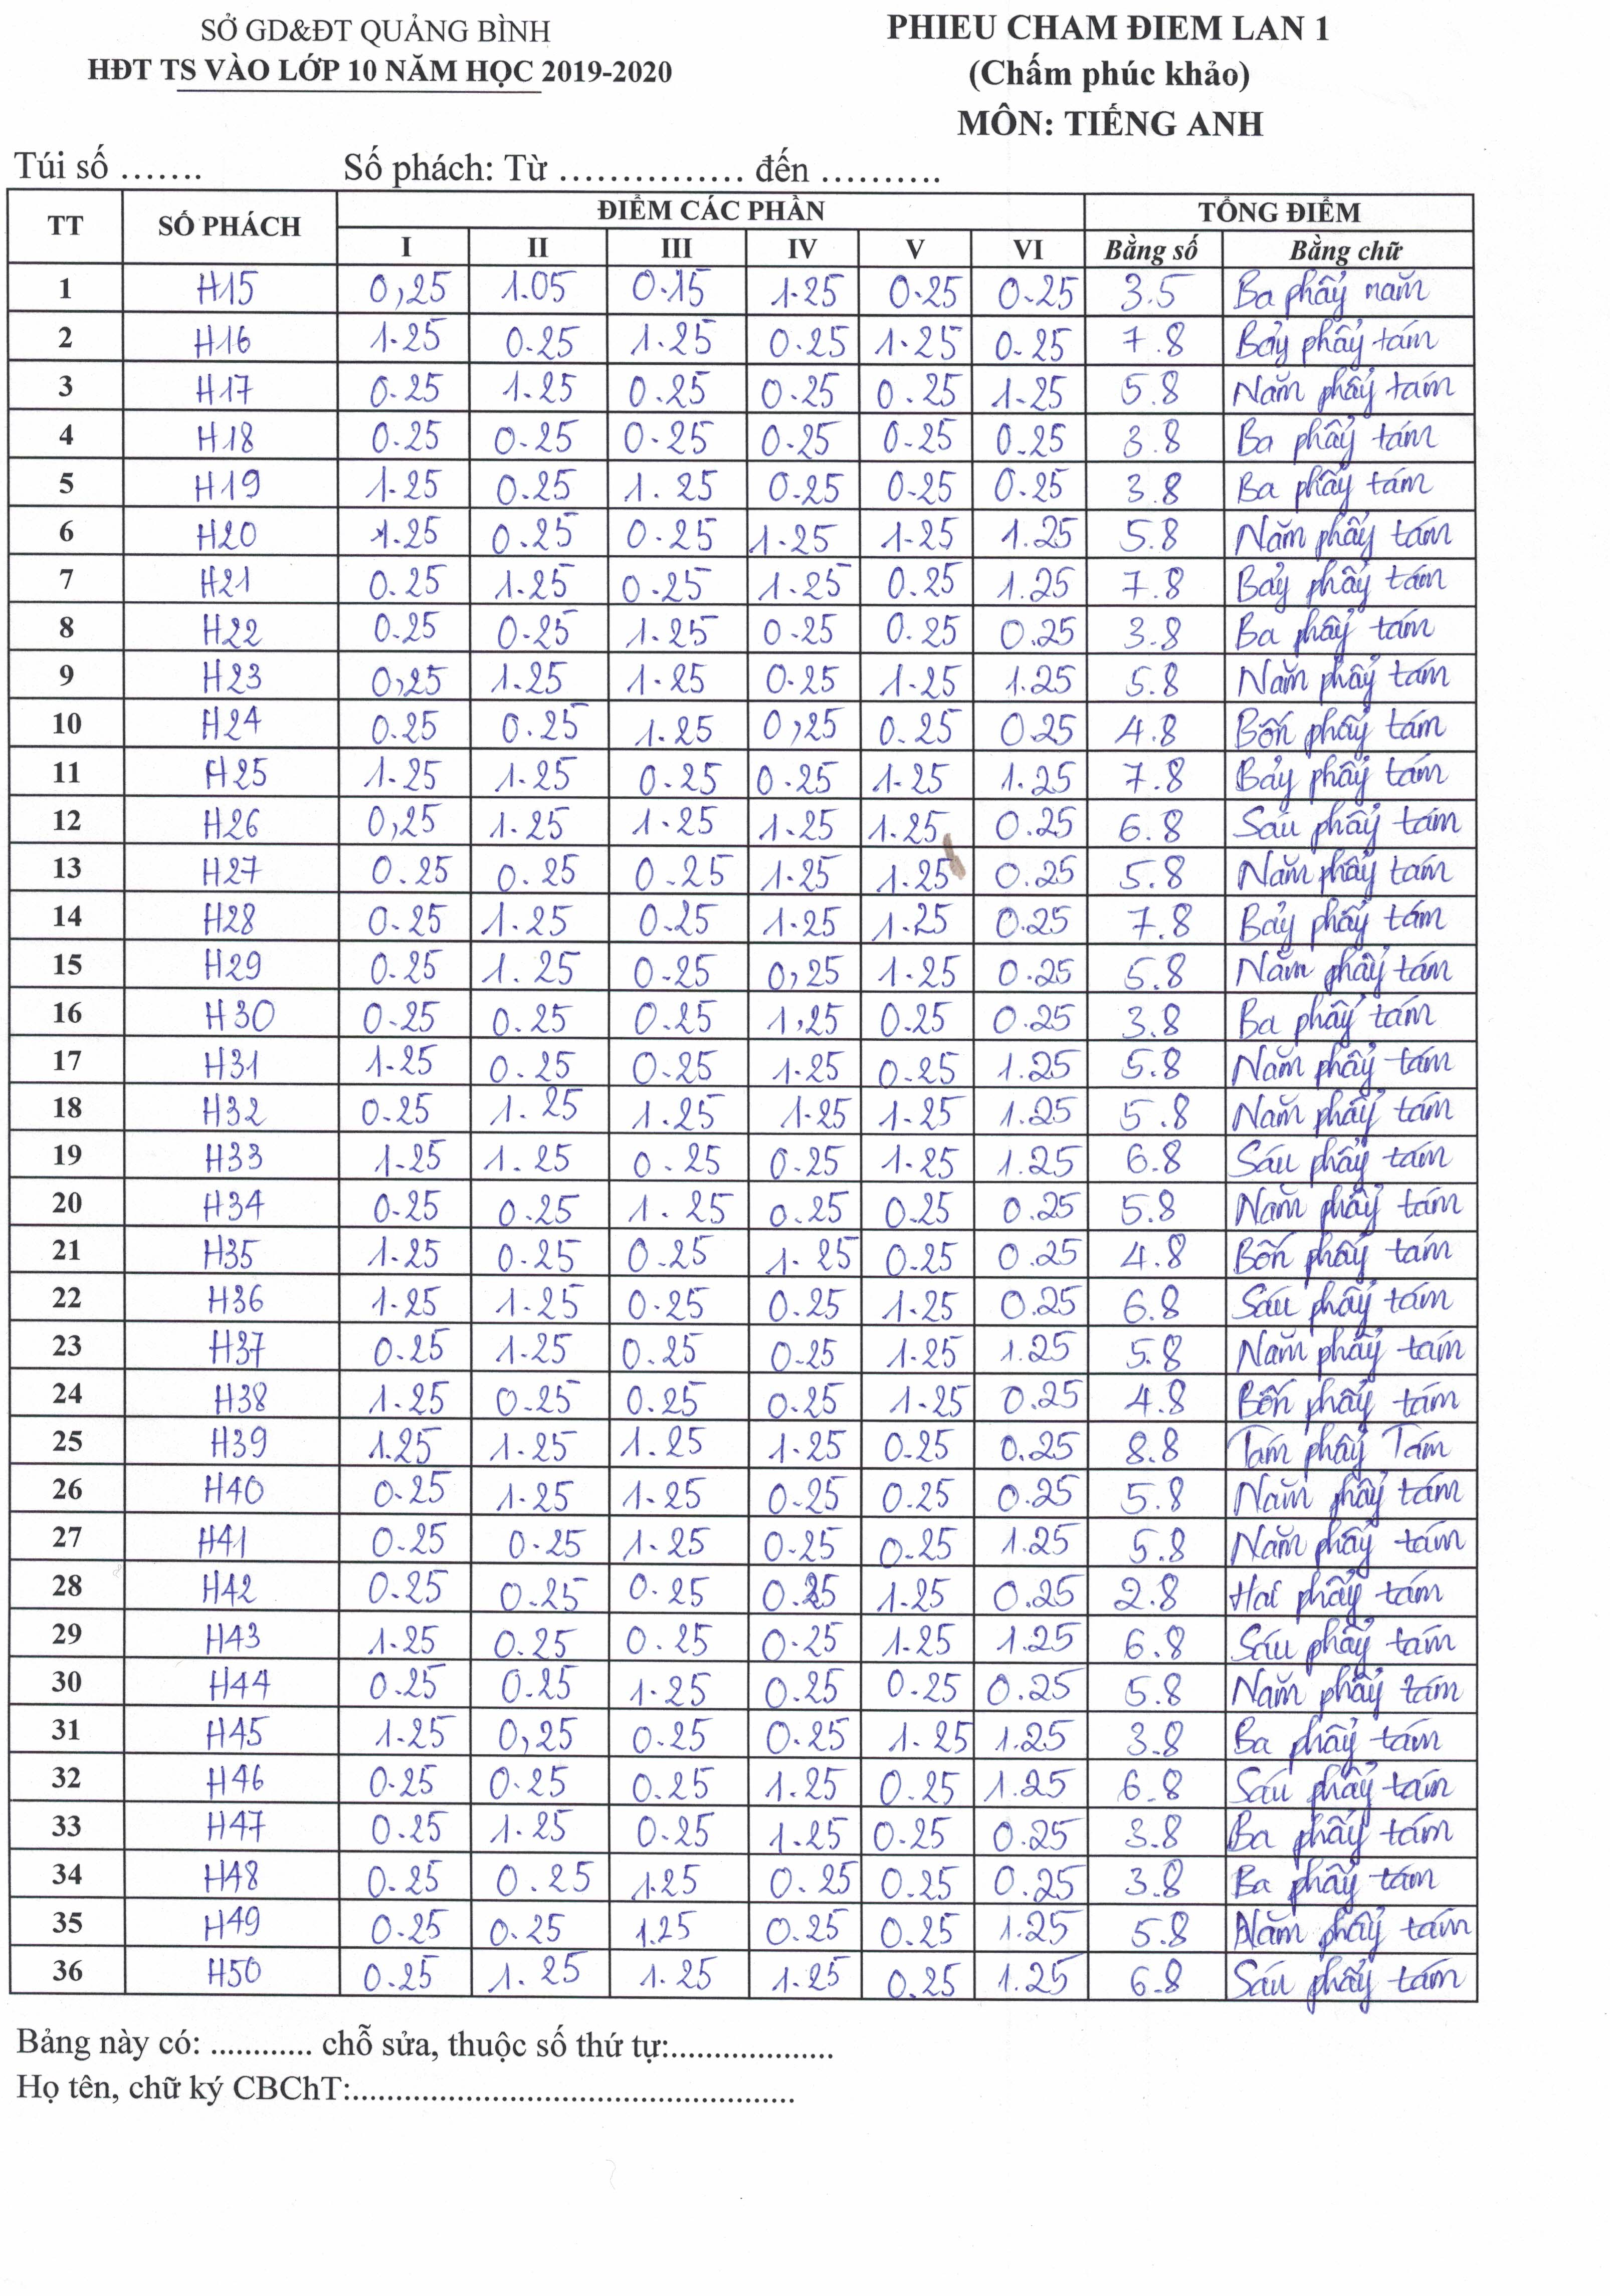 SỞ GD&ĐT QUẢNG BÌNH
HĐT TS VÀO LỚP 10 NĂM HỌC 2019-2020
PHIEU CHAM ĐIEM LAN 1
(Chấm phúc khảo)
MÔN: TIẾNG ANH
Túi số ....... Số phách: Từ ................ đến ...........
TT SỐ PHÁCH ĐIỂM CÁC PHẦN TỔNG ĐIỂM
I II III IV V VI Bằng số Bằng chữ
1 H15 0,25 1.05 0.15 1.25 0.25 0.25 3.5 Ba phẩy năm
2 H16 1.25 0.25 1.25 0.25 1.25 0.25 7.8 Bảy phẩy tám
3 H17 0.25 1.25 0.25 0.25 0.25 1.25 5.8 Năm phẩy tám
4 H18 0.25 0.25 0.25 0.25 0.25 0.25 3.8 Ba phẩy tám
5 H19 1.25 0.25 1.25 0.25 0.25 0.25 3.8 Ba phẩy tám
6 H20 1.25 0.25 0.25 1.25 1.25 1.25 5.8 Năm phẩy tám
7 H21 0.25 1.25 0.25 1.25 0.25 1.25 7.8 Bảy phẩy tám
8 H22 0.25 0.25 1.25 0.25 0.25 0.25 3.8 Ba phẩy tám
9 H23 0,25 1.25 1.25 0.25 1.25 1.25 5.8 Năm phẩy tám
10 H24 0.25 0.25 1.25 0,25 0.25 0.25 4.8 Bốn phẩy tám
11 H25 1.25 1.25 0.25 0.25 1.25 1.25 7.8 Bảy phẩy tám
12 H26 0,25 1.25 1.25 1.25 1.25 0.25 6.8 Sáu phẩy tám
13 H27 0.25 0.25 0.25 1.25 1.25 0.25 5.8 Năm phẩy tám
14 H28 0.25 1.25 0.25 1.25 1.25 0.25 7.8 Bảy phẩy tám
15 H29 0.25 1.25 0.25 0,25 1.25 0.25 5.8 Năm phẩy tám
16 H30 0.25 0.25 0.25 1,25 0.25 0.25 3.8 Ba phẩy tám
17 H31 1.25 0.25 0.25 1.25 0.25 1.25 5.8 Năm phẩy tám
18 H32 0.25 1.25 1.25 1.25 1.25 1.25 5.8 Năm phẩy tám
19 H33 1.25 1.25 0.25 0.25 1.25 1.25 6.8 Sáu phẩy tám
20 H34 0.25 0.25 1.25 0.25 0.25 0.25 5.8 Năm phẩy tám
21 H35 1.25 0.25 0.25 1.25 0.25 0.25 4.8 Bốn phẩy tám
22 H36 1.25 1.25 0.25 0.25 1.25 0.25 6.8 Sáu phẩy tám
23 H37 0.25 1.25 0.25 0.25 1.25 1.25 5.8 Năm phẩy tám
24 H38 1.25 0.25 0.25 0.25 1.25 0.25 4.8 Bốn phẩy tám
25 H39 1.25 1.25 1.25 1.25 0.25 0.25 8.8 Tám phẩy Tám
26 H40 0.25 1.25 1.25 0.25 0.25 0.25 5.8 Năm phẩy tám
27 H41 0.25 0.25 1.25 0.25 0.25 1.25 5.8 Năm phẩy tám
28 H42 0.25 0.25 0.25 0.25 1.25 0.25 2.8 Hai phẩy tám
29 H43 1.25 0.25 0.25 0.25 1.25 1.25 6.8 Sáu phẩy tám
30 H44 0.25 0.25 1.25 0.25 0.25 0.25 5.8 Năm phẩy tám
31 H45 1.25 0,25 0.25 0.25 1.25 1.25 3.8 Ba phẩy tám
32 H46 0.25 0.25 0.25 1.25 0.25 1.25 6.8 Sáu phẩy tám
33 H47 0.25 1.25 0.25 1.25 0.25 0.25 3.8 Ba phẩy tám
34 H48 0.25 0.25 1.25 0.25 0.25 0.25 3.8 Ba phẩy tám
35 H49 0.25 0.25 1.25 0.25 0.25 1.25 5.8 Năm phẩy tám
36 H50 0.25 1.25 1.25 1.25 0.25 1.25 6.8 Sáu phẩy tám
Bảng này có: ............ chỗ sửa, thuộc số thứ tự:...................
Họ tên, chữ ký CBChT:...................................................